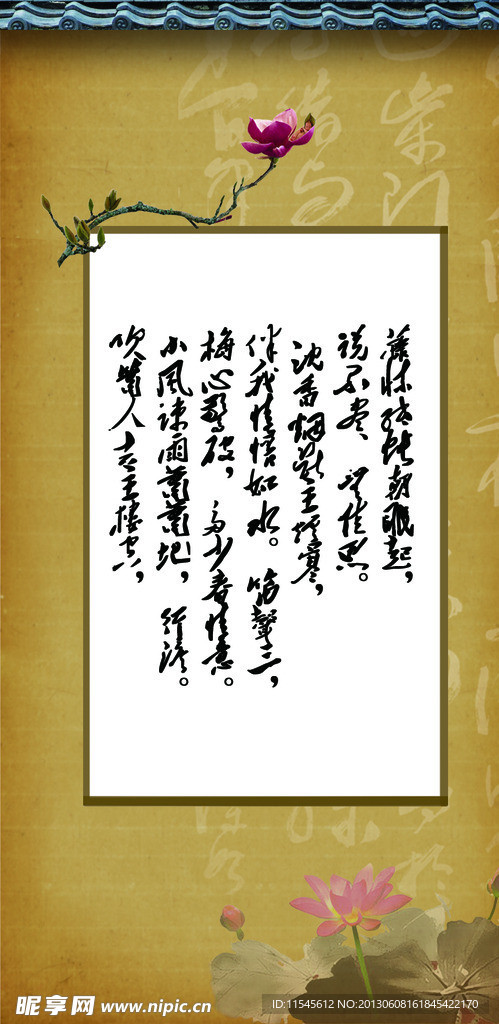 藤床纸帐朝眠起，
说不尽、无佳思。
沈香烟断玉炉寒，
伴我情怀如水。 笛聲三，
梅心惊破， 多少春情意。
小风疎雨萧萧地， 行泪。
吹箫人去玉楼空，
昵享网 www.nipic.cn
ID:11545612 NO:20130608161845422170